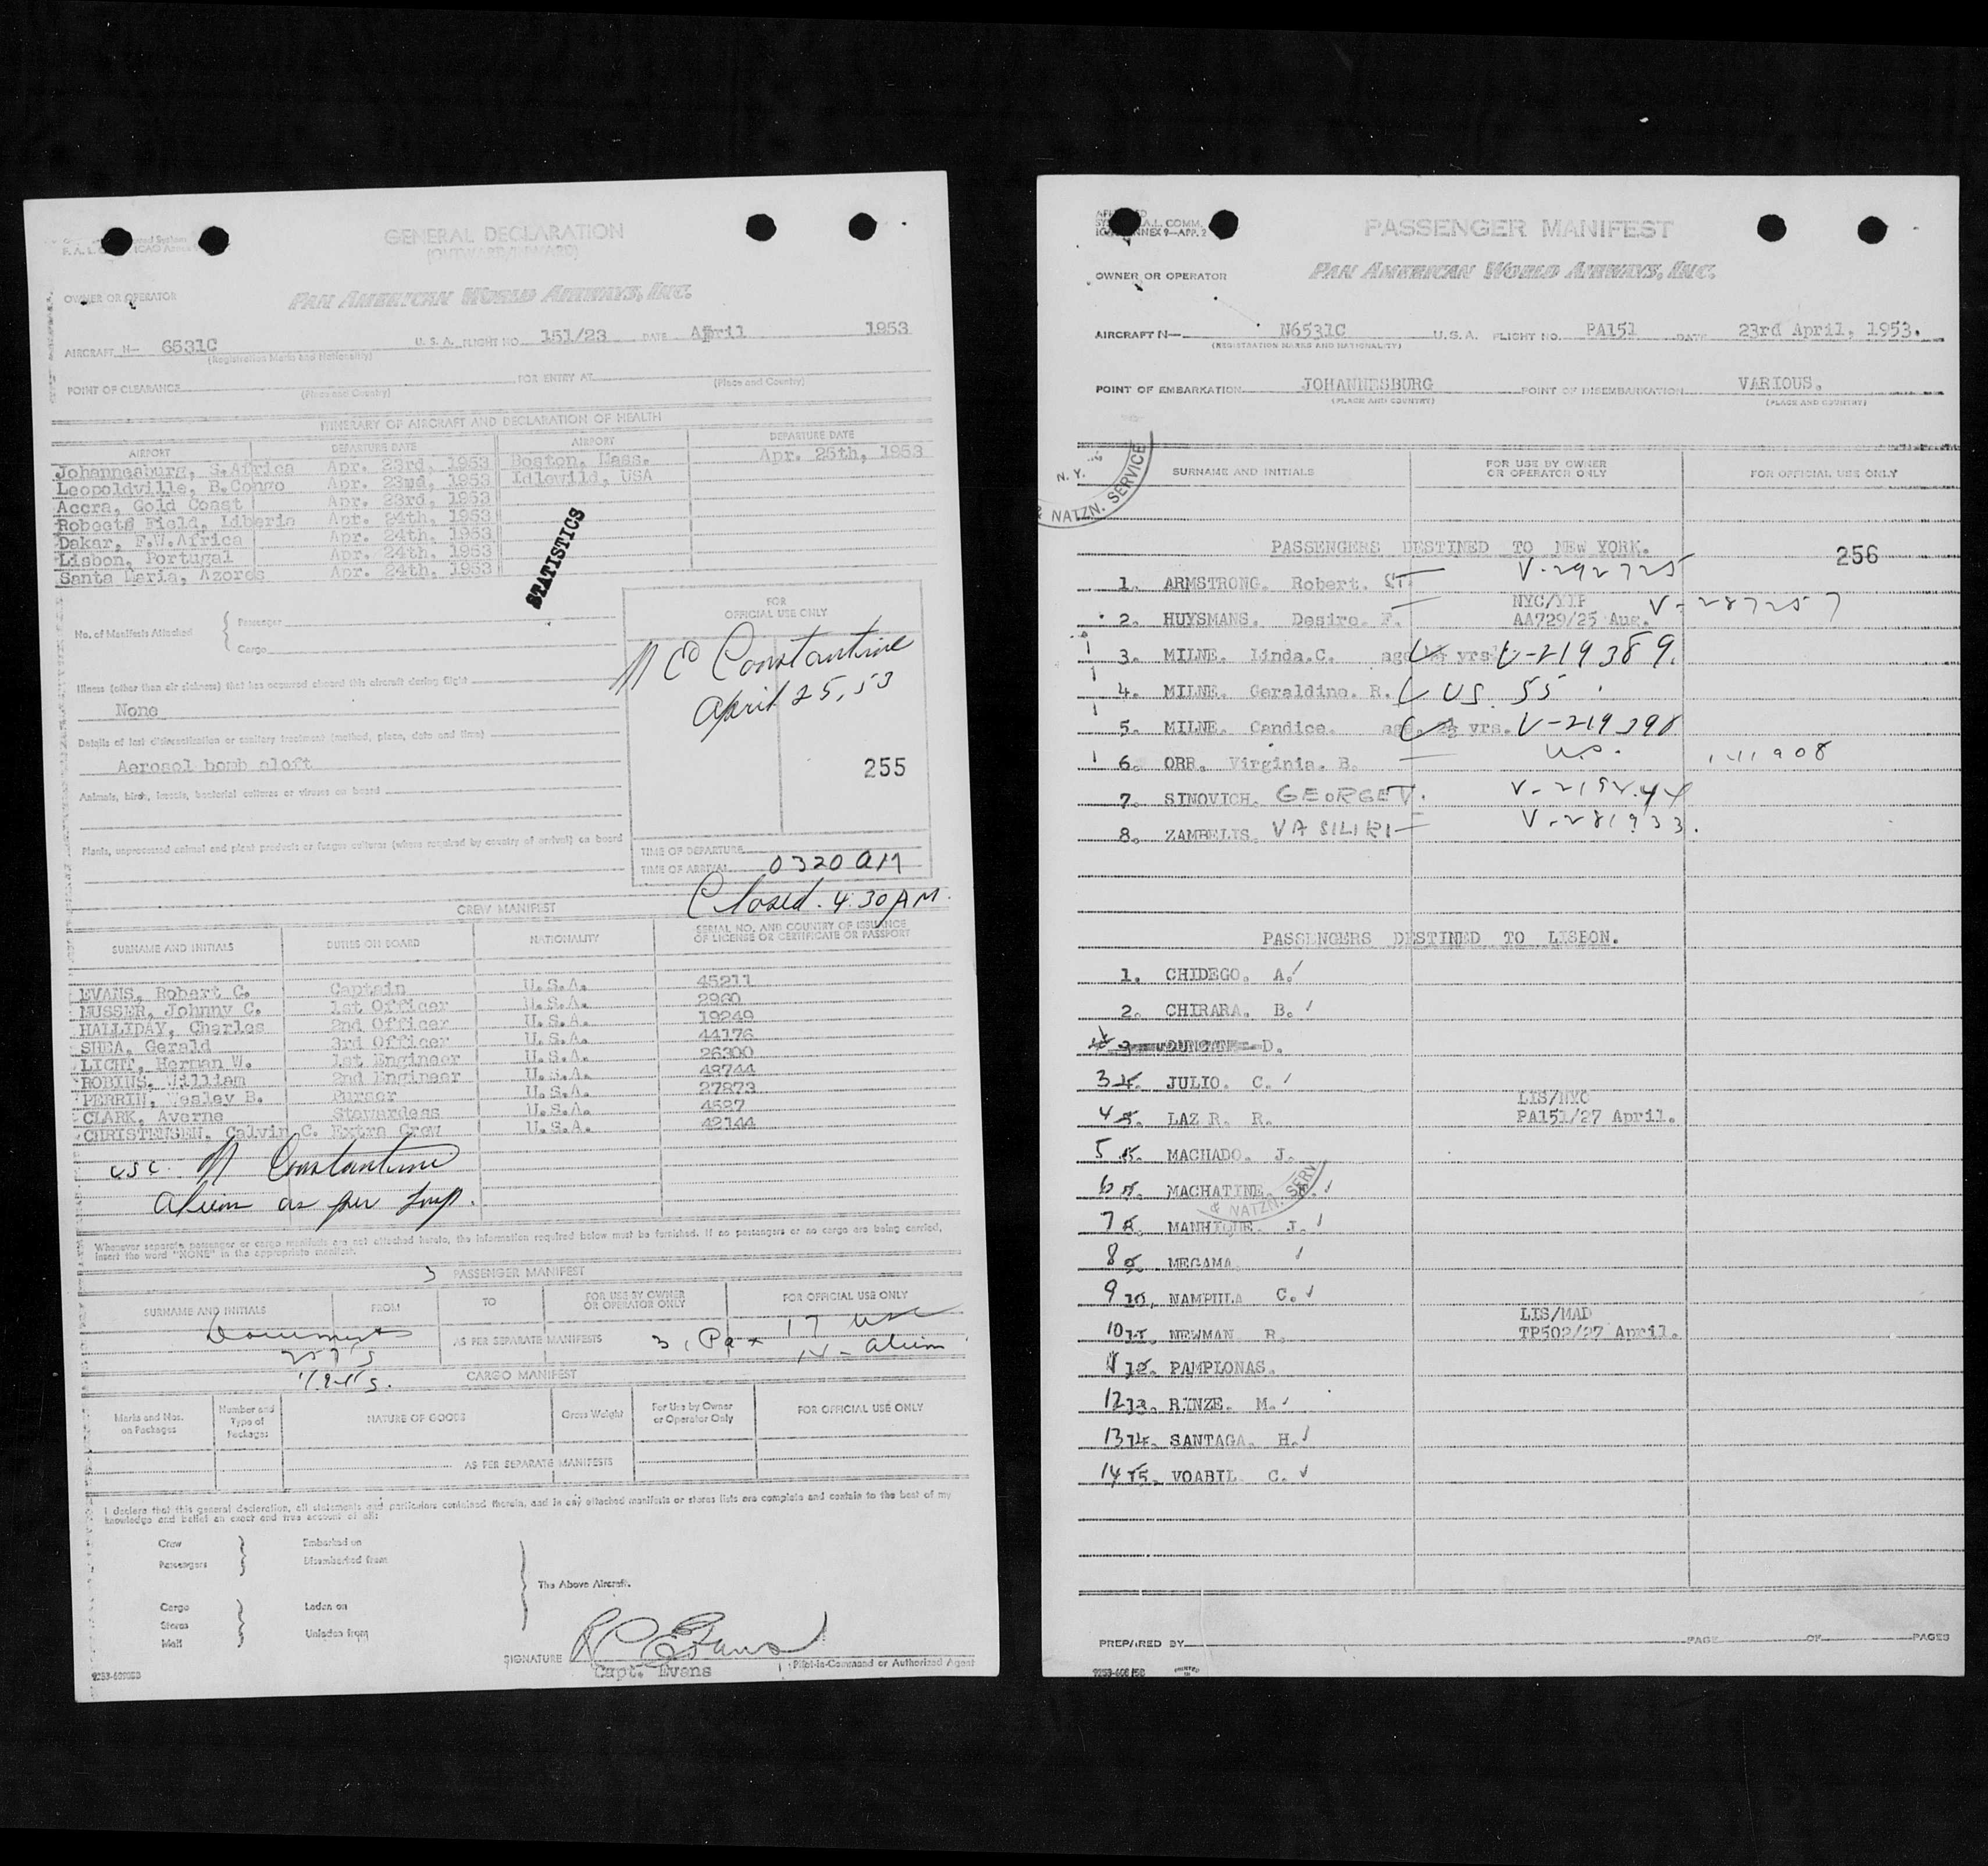 GENERAL DECLARATION
(OUTWARD/INWARD)
OWNER OR OPERATOR
PAN AMERICAN WORLD AIRWAYS, INC.
AIRCRAFT N- 6531C U. S. A. FLIGHT NO. 151/23 DATE April 1953
(Registration Marks and Nationality)
POINT OF CLEARANCE FOR ENTRY AT
(Place and Country) (Place and Country)
ITINERARY OF AIRCRAFT AND DECLARATION OF HEALTH
AIRPORT DEPARTURE DATE AIRPORT DEPARTURE DATE
Johannesburg, S.Africa Apr. 23rd, 1953 Boston, Mass. Apr. 25th, 1953
Leopoldville, B.Congo Apr. 23rd, 1953 Idlewild, USA
Accra, Gold Coast Apr. 23rd, 1953
Roberts Field, Liberia Apr. 24th, 1953
Dakar, F.W.Africa Apr. 24th, 1953
Lisbon, Portugal Apr. 24th, 1953
Santa Maria, Azores Apr. 24th, 1953
STATISTICS
No. of Manifests Attached { Passenger
Cargo
FOR
OFFICIAL USE ONLY
Constantine
April 25, 53
255
Illness (other than air sickness) that has occurred aboard this aircraft during flight
None
Details of last disinsectization or sanitary treatment (method, place, date and time)
Aerosol bomb aloft
Animals, birds, insects, bacterial cultures or viruses on board
Plants, unprocessed animal and plant products or fungus cultures (where required by country of arrival) on board
TIME OF DEPARTURE
TIME OF ARRIVAL 0320 AM
Closed. 4:30 AM.
CREW MANIFEST
SURNAME AND INITIALS DUTIES ON BOARD NATIONALITY SERIAL NO. AND COUNTRY OF ISSUANCE
OF LICENSE OR CERTIFICATE OR PASSPORT
EVANS, Robert C. Captain U.S.A. 45211
MUSSER, Johnny C. 1st Officer U.S.A. 2960
HALLIDAY, Charles 2nd Officer U.S.A. 19249
SHEA, Gerald 3rd Officer U.S.A. 44176
LICHT, Herman W. 1st Engineer U.S.A. 26300
ROBINS, William 2nd Engineer U.S.A. 48744
PERRIN, Wesley B. Purser U.S.A. 27873
CLARK, Averne Stewardess U.S.A. 4527
CHRISTENSEN, Calvin C. Extra Crew U.S.A. 42144
usc. N Constantine
Alien as per
Whenever separate passenger or cargo manifests are not attached hereto, the information required below must be furnished. If no passengers or no cargo are being carried,
insert the word "NONE" in the appropriate manifest.
3 PASSENGER MANIFEST
SURNAME AND INITIALS FROM TO FOR USE BY OWNER
OR OPERATOR ONLY FOR OFFICIAL USE ONLY
Documents AS PER SEPARATE MANIFESTS 31 Pax 17 usc
Alien
CARGO MANIFEST
Marks and Nos.
on Packages Number and
Type of
Packages NATURE OF GOODS Gross Weight For Use by Owner
or Operator Only FOR OFFICIAL USE ONLY
AS PER SEPARATE MANIFESTS
I declare that this general declaration, all statements and particulars contained therein, and in any attached manifests or stores lists are complete and contain to the best of my
knowledge and belief an exact and true account of all:
Crew Embarked on
Passengers Disembarked from
The Above Aircraft.
Cargo Laden on
Stores
Mail Unladen from
SIGNATURE R C Evans
Capt. Evans Pilot-in-Command or Authorized Agent
PASSENGER MANIFEST
OWNER OR OPERATOR PAN AMERICAN WORLD AIRWAYS, INC.
AIRCRAFT N- N6531C U.S.A. FLIGHT NO. PA151 DATE 23rd April, 1953.
(REGISTRATION MARKS AND NATIONALITY)
POINT OF EMBARKATION JOHANNESBURG POINT OF DISEMBARKATION VARIOUS.
(PLACE AND COUNTRY) (PLACE AND COUNTRY)
N. Y.
& NATZN. SERVICE
SURNAME AND INITIALS FOR USE BY OWNER
OR OPERATOR ONLY FOR OFFICIAL USE ONLY
PASSENGERS DESTINED TO NEW YORK.
256
1. ARMSTRONG. Robert. V-292725
2. HUYSMANS. Desire. F. NYC/YIP
AA729/25 Aug. V-287257
3. MILNE. Linda.C. aged yrs V-219389.
4. MILNE. Geraldine. R. US. 55
5. MILNE. Candice. aged 2½ yrs. V-219390
6. ORR. Virginia. B. U.S. 11908
7. SINOVICH. GEORGE V. V-219244
8. ZAMBELIS. VASILIKI V-281933.
PASSENGERS DESTINED TO LISBON.
1. CHIDEGO. A.
2. CHIRARA. B.
3. D.
3 4. JULIO. C.
4 5. LAZ R. R. LIS/NYC
PA151/27 April.
5 6. MACHADO. J.
6 7. MACHATINE
& NATZN. SERV
7 8. MANHIQUE. J.
8 9. MEGAMA
9 10. NAMPULA C.
10 11. NEWMAN R. LIS/MAD
TP502/27 April.
11 12. PAMPLONAS.
12 13. RINZE. M.
13 14. SANTAGA. H.
14 15. VOABIL C.
PREPARED BY PAGE OF PAGES